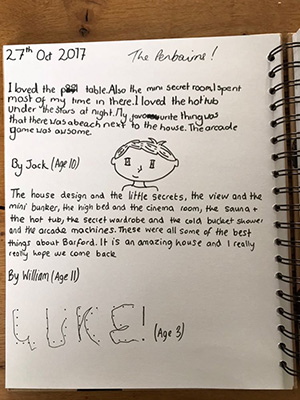 27th Oct 2017 The Penbairns!
I loved the pool table. Also the mini secret room, I spent
most of my time in there. I loved the hot tub
under the stars at night. My favourite thing was
that there was a beach next to the house. The arcade
game was awsome.
By Jack (Age 10)
The house design and the little secrets, the view and the
mini bunker, the high bed and the cinema room, the sauna +
the hot tub, the secret wardrobe and the cold bucket shower
and the arcade machines. These were all some of the best
things about Barford. It is an amazing house and I really
really hope we come back
By William (Age 11)
LUKE! (Age 3)